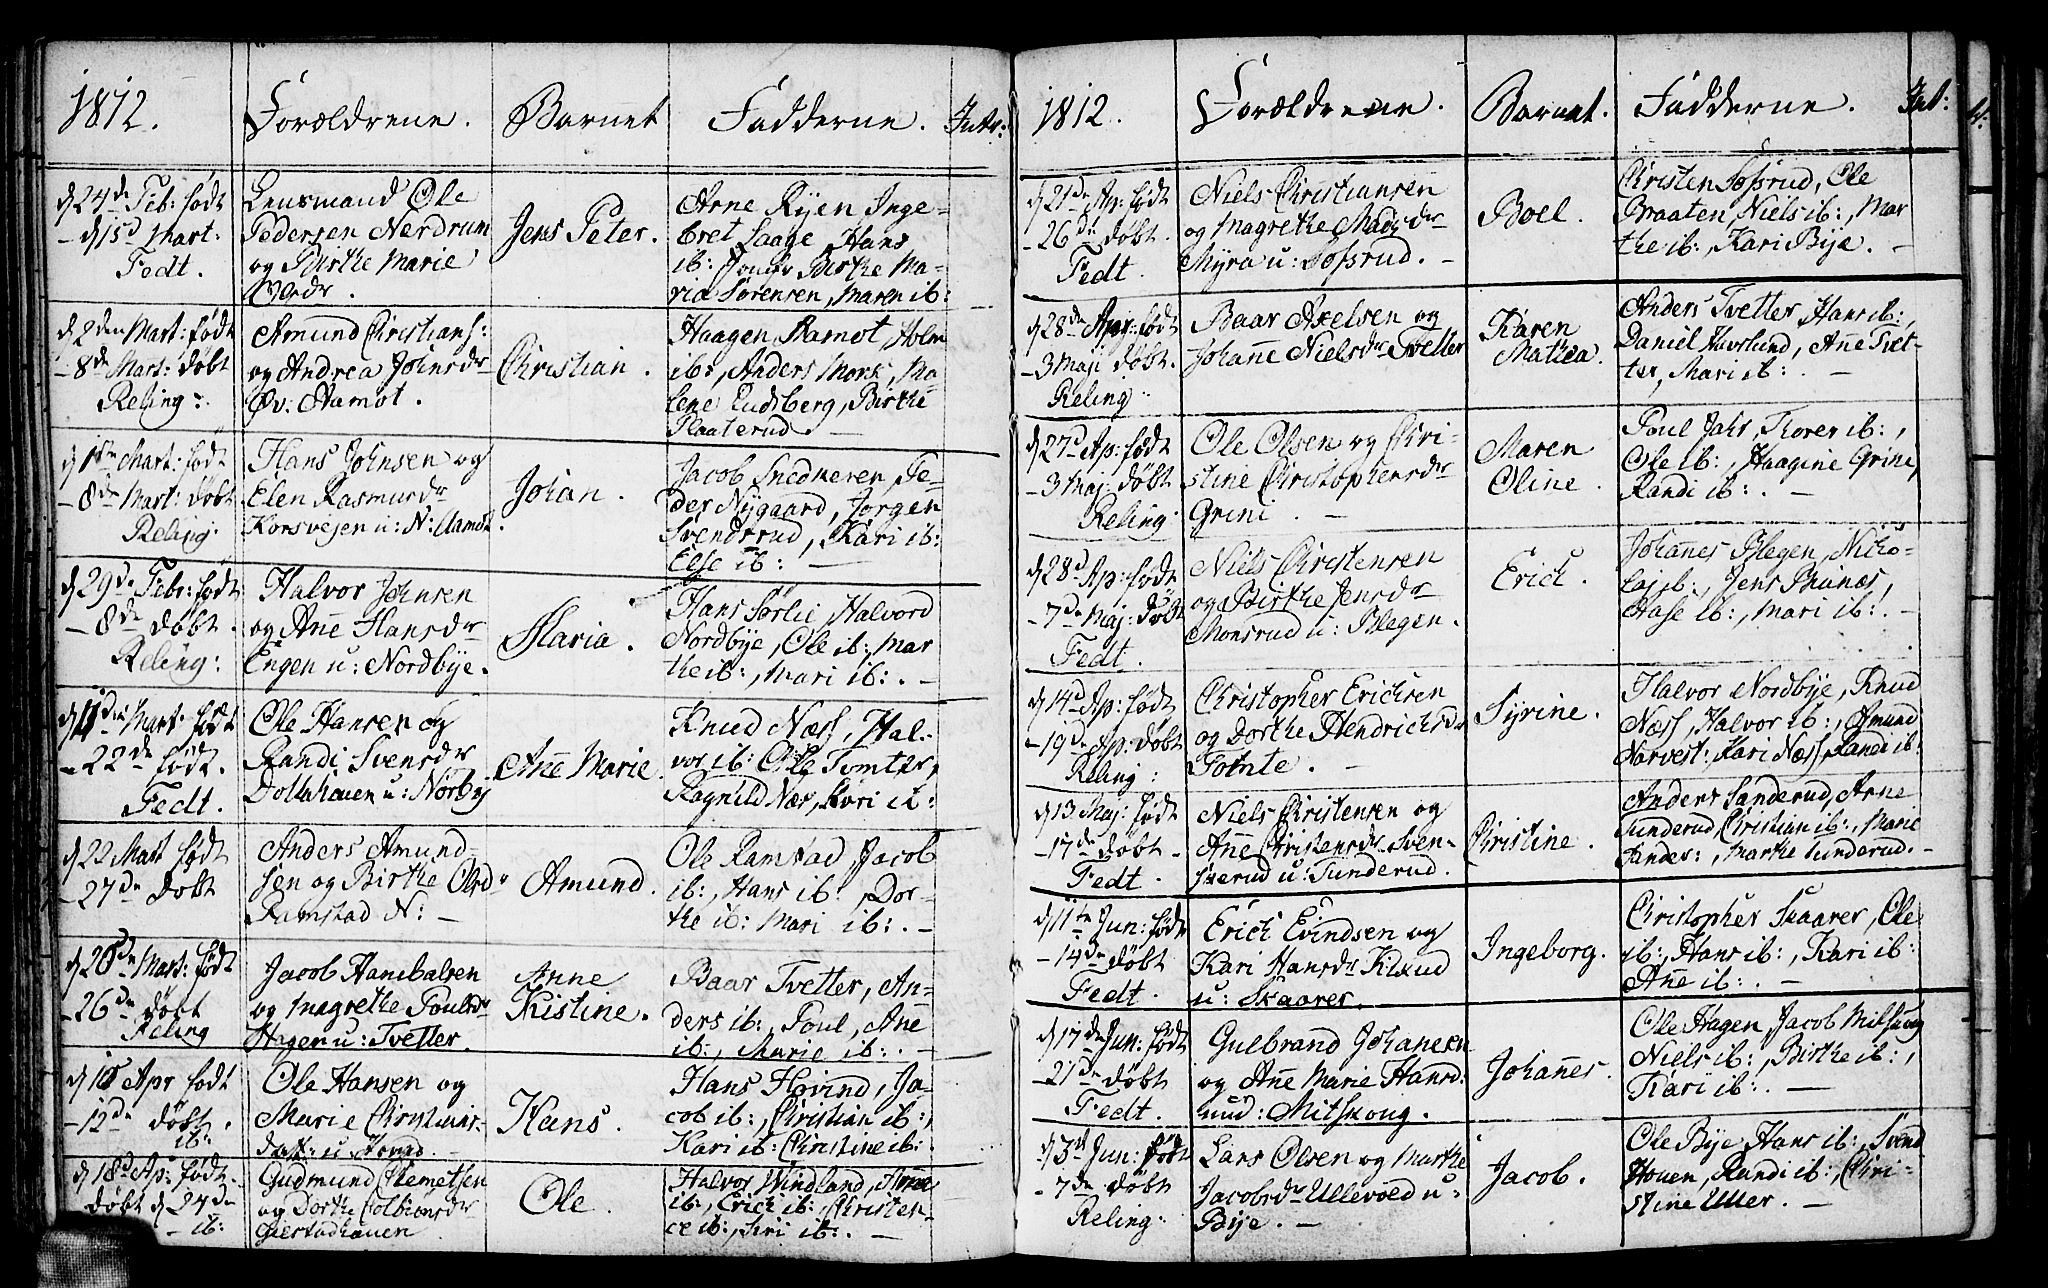 1812.
Forældrene.
Barnet
Fadderne.
Intr:
d 24de Feb: født
- d 15d Mart:
Fedt.
Lensmand Ole
Pedersen Nerdrum
og Birthe Marie
Jens Peter.
Arne Ryen Inge-
bret Saage Hans
ib: Birthe Ma-
ria Sørensen, Maren ib:
d 2den Mart: født
- 8de Mart: døbt
Reling:
Amund Christians:
og Andrea Johnsdr
Øv: Aamot.
Christian.
Haagen Aamot, Holm
ib:, Anders Mork, Ma-
lene Eudsberg, Birthe
Plaaterud
d 1ste Mart: født
- 8de Mart: døbt
Reling:
Hans Johnsen og
Elen Rasmusdr
Korsvejen u: N: Aamot.
Johan.
Jacob Snedkeren, Pe-
der Nygaard, Jørgen
Svendsrud, Kari ib:
Else ib: —
d 29de Febr: født
- 8de døbt.
Reling:
Halvor Johnsen
og Añe Hansdr
Engen u: Nordbye.
Maria.
Hans Sørlie, Halvord
Nordbye, Ole ib:, Mar
the ib:, Mari ib:. —
d 11de Mart: født
- 22de født.
Fedt.
Ole Hansen og
Randi Svensdr
Dollahauen u: Norby
Añe Marie.
Knud Næss, Hal-
vor ib: Ole Tomter,
Ragnild Næs, Kari ib:
d 22 Mart født
- 27de døbt
Anders Amund-
sen og Birthe Olsdr
Ramstad N: —
Amund.
Ole Ramstad, Jacob
ib:, Hans ib:, Dor-
the ib: Mari ib:. —
d 20de Mart: født
- 26de døbt
Reling
Jacob Hanibalsen
og Magrethe Poulsdr
Hagen u: Tvetter.
Anne
Kistine.
Baar Tvetter, An-
ders ib:, Poul, Ane
ib:, Marie ib:. —
d 10 Apr født
- 12de døbt.
ib:
Ole Hansen og
Marie Christians-
datt: u
Hans.
Hans Hovind, Ja-
cob ib:, Christian ib:,
Kari ib: Christine ib:
d 18d Ap: født
døbt d 27de
- ib:
Gudmund Clemetsen
og Dorthe Colbiønsdr
Gierstadhauen
Ole.
Halvor Windland, Anne
ib:, Erich ib:, Christen-
ce ib:, Siri ib:. —
1812.
Forældrene.
Barnet.
Fadderne.
Int:
d 21de Ap: født
- 26de døbt.
Fedt.
Niels Christiansen
og Magrethe Madsdr
Myra u: Sofsrud. —
Boel.
Christen Sofsrud, Ole
Braaten, Niels ib:, Mar
the ib:, Kari Bye. —
d 28de Apr: født
- 3 Maji døbt.
Reling:
Baar Axelsen og
Johañe Nielsdr Tvetter
Karen
Matea.
Anders Tvetter, Hans ib:,
Daniel Havslund, Ane Tvet-
ter, Mari ib: . —
d 27d Ap: født
- 3 Maj: døbt
Reling:
Ole Olsen og Chri-
stine Christophersdr
Grini . —
Maren
Oline.
Poul Jahr, Torer ib:,
Ole ib:, Haagine Grini,
Randi ib: . —
d 28d Ap: født
- 7de Maj: døbt
Fedt.
Niels Christensen
og Birthe Jensdr
Monsrud u: Blegen.
Erich.
Johannes Blegen, Nicho-
laj ib:, Jens Brunæs,
Aase ib:, Mari ib:. —
d 14d Ap: født
- 19de Ap: døbt
Reling:
Christopher Erichsen
og Dorthe Hendrichsdr
Tomte. —
Syrine.
Halvor Nordbye, Knud
Næss, Halvor ib:, Amund
Norvest:, Kari Næss, Randi ib:
d 13 Maj: født
- 17de døbt -
Fedt.
Niels Christensen og
Añe Christensdr Sven-
skerud u: Sunderud.
Christine.
Anders Sanderud, Arne
Sunderud, Christian ib:, Marie
Sander:, Marthe Sunderud. -
d 11te Jun: født
- 14de døbt
Fedt.
Erich Evindsen og
Kari Hansdr Kixrud
u: Skaarer.
Ingeborg.
Christopher Skaarer, Ole
ib:, Hans ib:, Kari ib:
Añe ib: . —
d 17de Jun: født
- 21de døbt
Fedt.
Gulbrand Johanesen
og Añe Marie Hansd:
und: Mitskoug.
Johañes.
Ole Hagen Jacob Mitskoug
Niels ib:, Birthe ib:,
Kari ib: . —
d 3d Jun: født
- 7de døbt
Reling:
Lars Olsen og Marthe
Jacobsdr Ullevold u:
Bye. —
Jacob.
Ole Bye Hans ib:, Svend
Houen, Randi ib:, Chri-
stine Uller . —